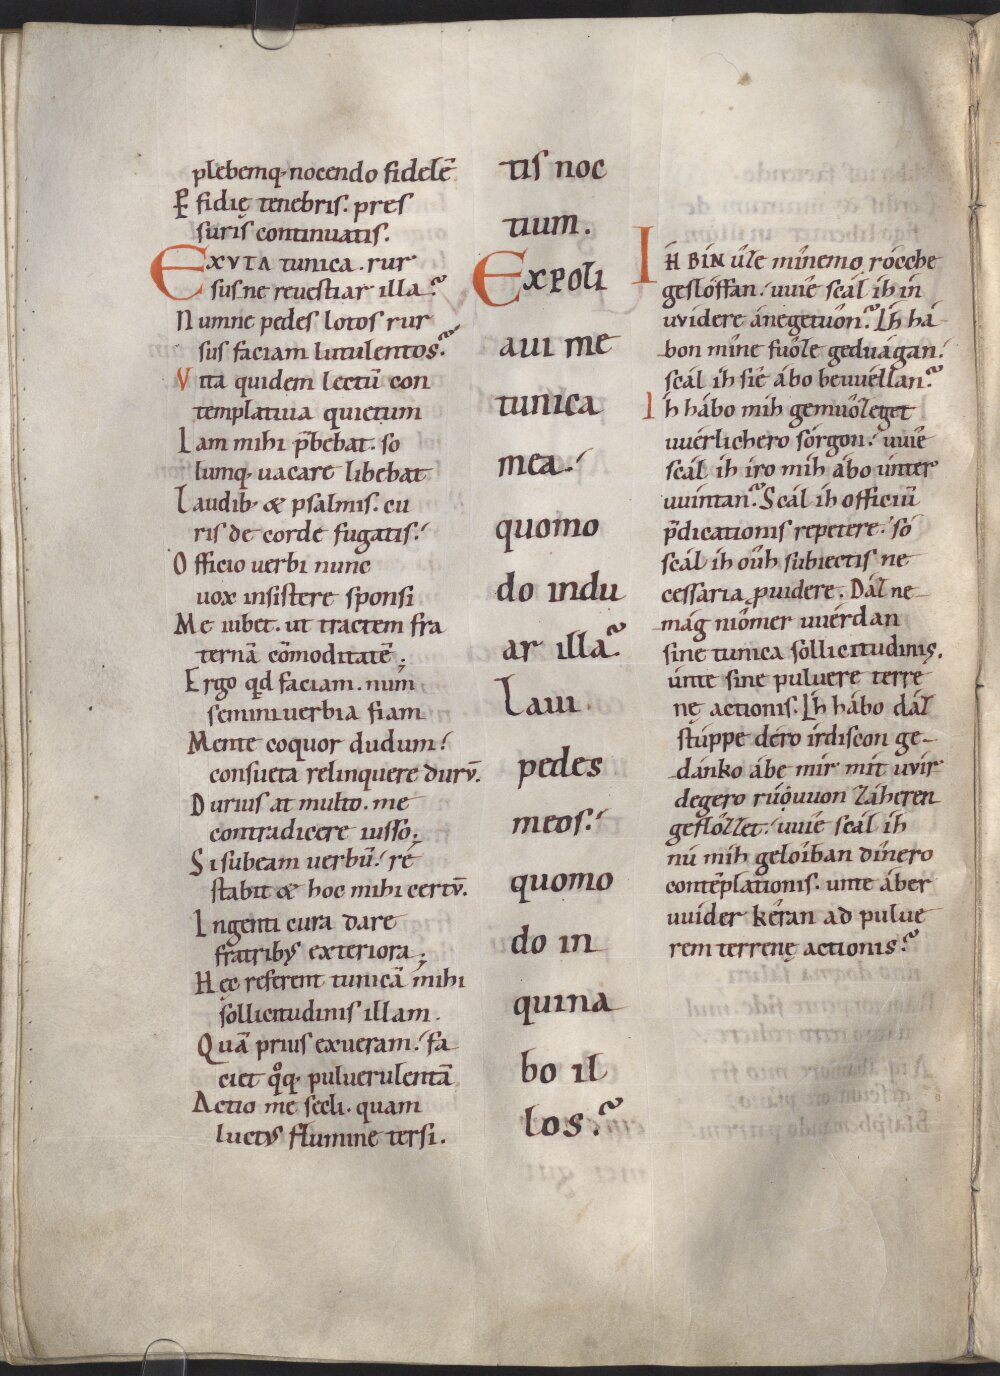 plebemq; nocendo fidelē
P̲fidię tenebris. pres
suris continuatis.
EXVTA tunica. rur
susne revestiar illa?
Numne pedes lotos rur
sus faciam lutulentos?
Vita quidem lectū con
templativa quietum
Iam mihi p̄bebat. so
lumq; vacare libebat
Laudib; & psalmis. cu
ris de corde fugatis:
Officio verbi nunc
vox insistere sponsi
Me iubet. ut tractem fra
ternā cōmoditatē;
Ergo qd faciam. num̄
seminiverbia fiam
Mente coquor dudum:
consueta relinquere durū.
Durius at multo. me
contradicere iusso;
Si subeam verbū: re
stabit & hoc mihi certū.
Ingenti cura dare
fratribus exteriora;
Hęc referent tunicā mihi
sollicitudinis illam.
Quā prius exueram: fa
ciet qͦq; pulverulentā
Actio me secli. quam
luctus flumine tersi.
tis noc
tium.
Expoli
avi me
tunica
mea:
quomo
do indu
ar illā?
Lavi
pedes
meos:
quomo
do in
quina
bo il
los?
IH BIN úle mînemo rócche
geslóffan: vuîe scál ih in
uvidere ánegetûon? Ih há
bon mîne fuôze geduágan:
scál ih siê ábo bewéllan?
Ih hábo mih gemûozeget
uuérlichero sórgon: uuîe
scál ih iro mih ábo únter
uuíntan? Scál ih officiū
p̄dicationis repetere: só
scál ih oûh subiectis ne
cessaria ꝓvidere. Dáz ne
mág niômer uuérdan
sine tunica sollicitudinis.
únte sine pulvere terre
nę actionis. Ih hábo dáz
stúppe déro írdiscon ge-
dánko ábe mir mit uvír
degero rûouuon záheren
geflôzzet: uuîe scál ih
nú mih geloíban dînero
contēplationis. unte áber
uuider kêran ad pulve
rem terrenę actionis?